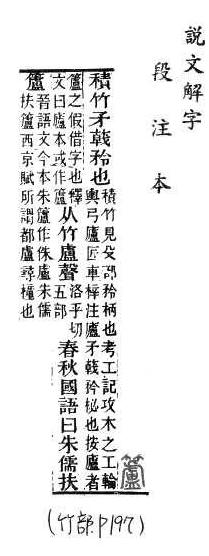 説文解字
段注本
籚
積竹矛戟矜也積竹見殳部矜柄也考工記攻木之工輪
輿弓廬匠車梓注廬矛戟矜柲也按廬者
籚之假借字也釋
文曰廬本或作籚
从竹盧聲
洛乎切
五部
春秋國語曰朱儒扶
籚
晉語文今本朱籚作侏盧朱儒
扶籚西京賦所謂都盧尋橦也
(竹部.P197)